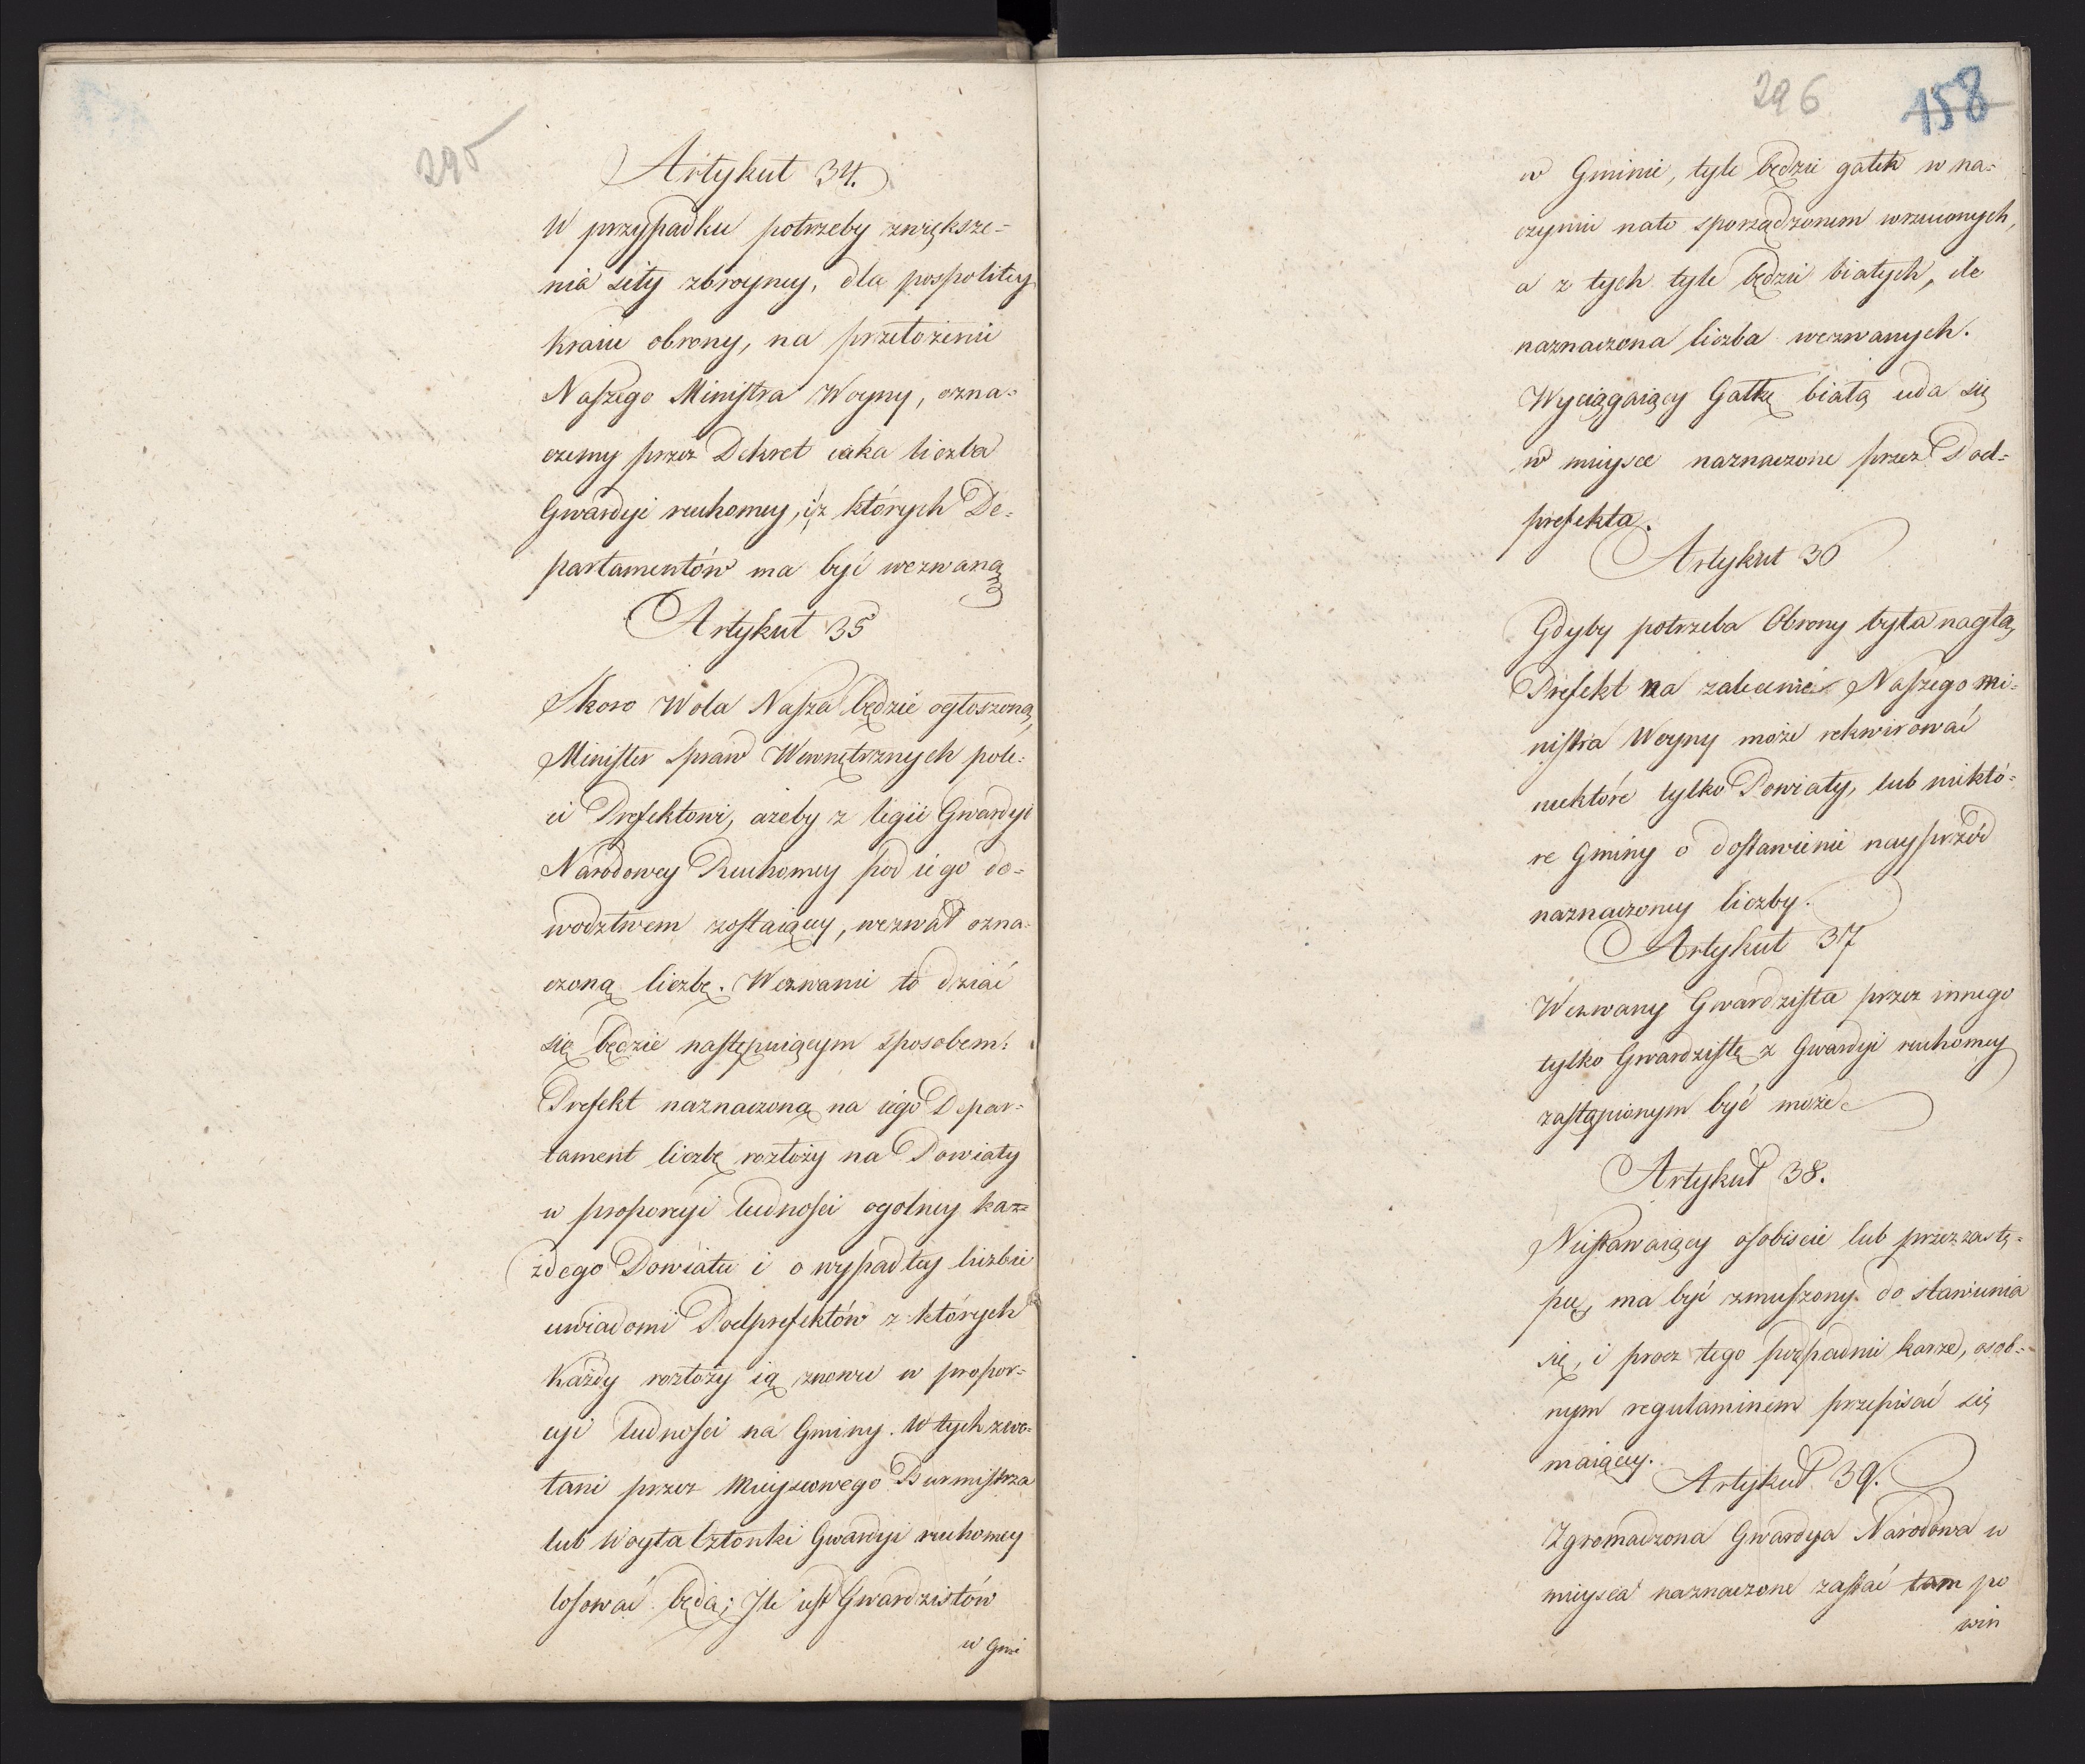 295
Artykuł 34.
W przypadku potrzeby zwiększe=
nia siły zbroyney, dla pospolitey
Kraiu obrony, na przełożenie
Naszego Ministra Woyny, ozna=
czemy przez Dekret iaka liczba
Gwardyi ruchomey, i z których De=
partamentów ma być wezwaną
Artykuł 35
Skoro Wola Nasza będzie ogłoszoną,
Minister Spraw Wewnętrznych pole=
ci Prefektowi, ażeby z legii Gwardyi
Narodowey Ruchomey pod iego do=
wodztwem zostaiącey, wezwał ozna=
czoną liczbę. Wezwanie to dziać
się będzie następuiącym sposobem:
Prefekt naznaczoną na iego Depar=
tament liczbę rozłoży na Powiaty
w proporcyi ludności ogolney kaz=
żdego Powiatu i o wypadłey liczbie
uwiadomi Podprefektów z których
Każdy rozłoży ią znowu w propor=
cyi ludności na Gminy. W tych zwo=
łani przez Mieyscowego Burmistrza
lub Woyta Członki Gwardyi ruchomey
losować będą; Ile iest Gwardzistów
w Gmi
296
158
w Gminie, tyle będzie gałek w na=
czyniu nato sporządzonem wrzuconych,
a z tych tyle będzie białych, ile
naznaczona liczba wezwanych.
Wyciągaiący Gałkę białą uda się
w mieysce naznaczone przez Pod=
prefekta.
Artykuł 36
Gdyby potrzeba Obrony była nagłą,
Prefekt na zalecenie Naszego mi=
nistra Woyny może rekwirować
niektóre tylko Powiaty, lub niektó=
re Gminy o dostawienie nayprzód
naznaczoney liczby.
Artykuł 37
Wezwany Gwardzista przez innego
tylko Gwardzistę z Gwardyi ruchomey
zastąpionym być może
Artykuł 38.
Niestawaiący osobiscie lub przez zastę=
pcę, ma być zmuszony do stawienia
się, i procz tego podpadnie karze, osob=
nym regulaminem przepisać się
maiącey.
Artykuł 39.
Zgromadzona Gwardya Narodowa w
mieysca naznaczone zastać tam po
win